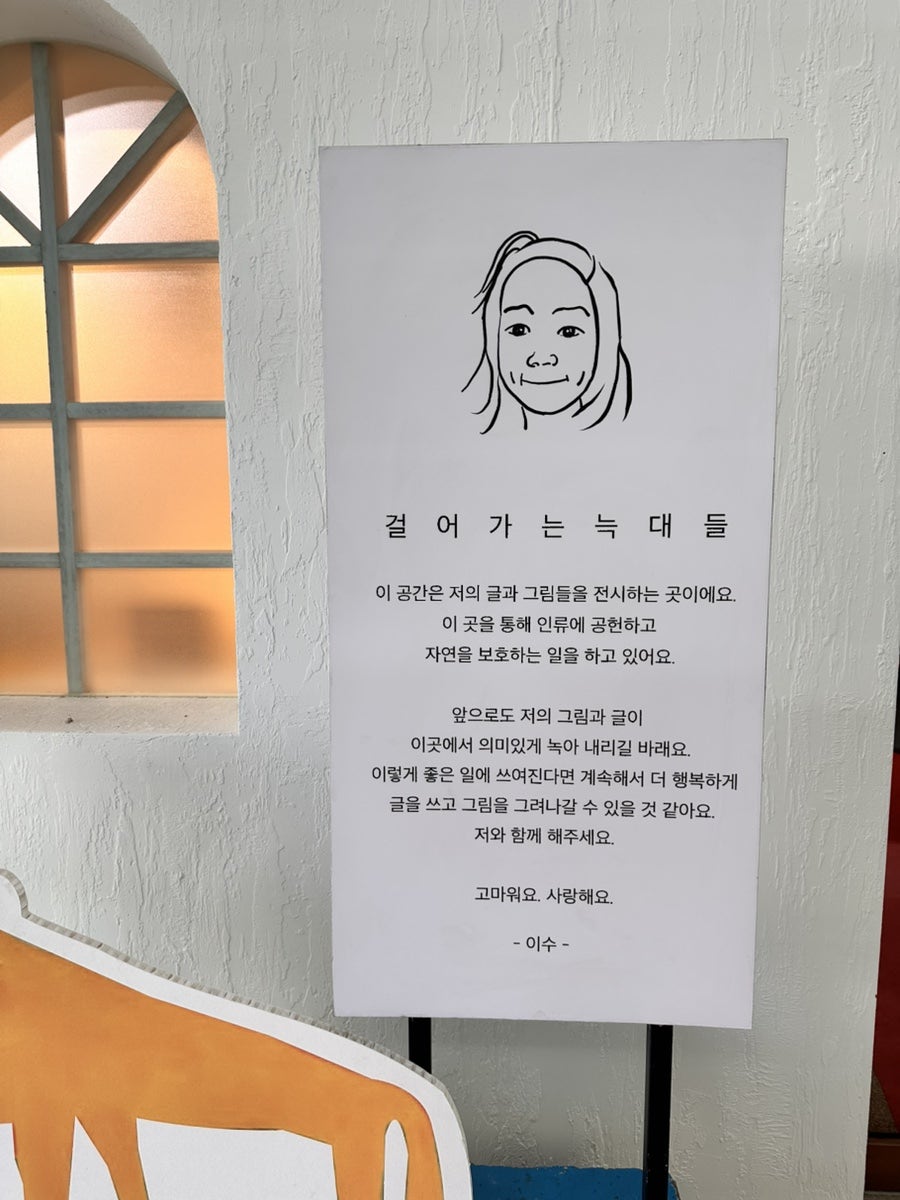 걸어가는늑대들
이 공간은 저의 글과 그림들을 전시하는 곳이에요.
이 곳을 통해 인류에 공헌하고
자연을 보호하는 일을 하고 있어요.
앞으로도 저의 그림과 글이
이곳에서 의미있게 녹아 내리길 바래요.
이렇게 좋은 일에 쓰여진다면 계속해서 더 행복하게
글을 쓰고 그림을 그려나갈 수 있을 것 같아요.
저와 함께 해주세요.
고마워요. 사랑해요.
- 이수 -